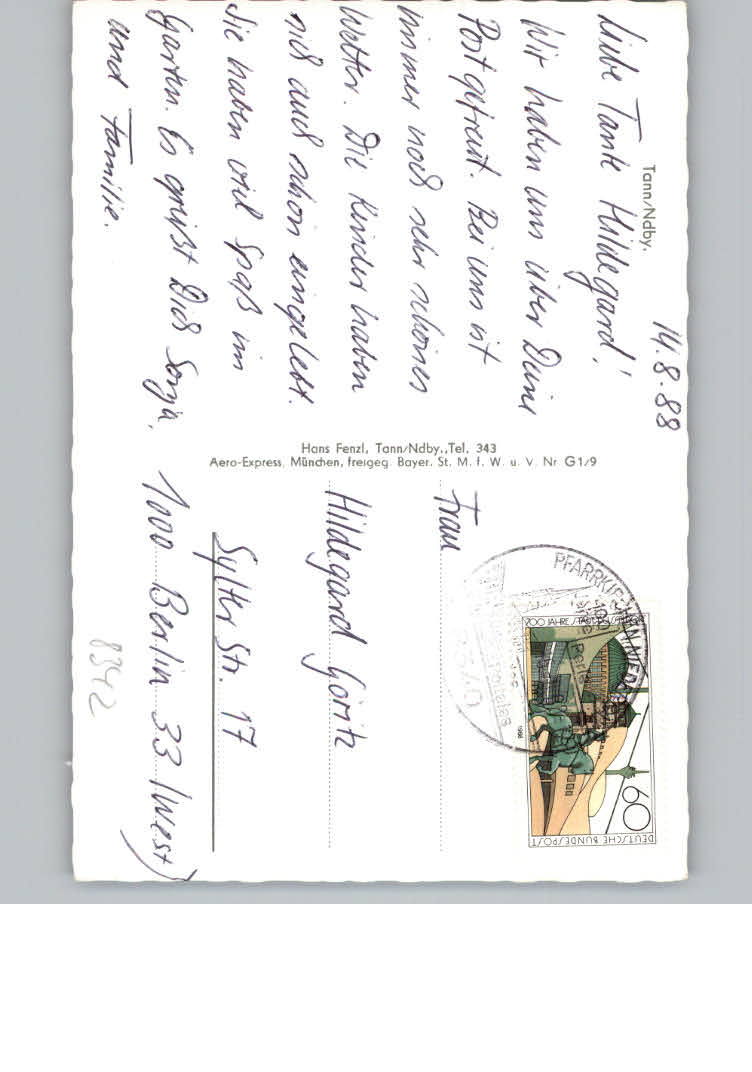 Tann/Ndby.
14.8.88
Liebe Tante Hildegard!
Wir haben uns über Deine
Post gefreut. Bei uns ist
immer noch sehr schönes
Wetter. Die Kinder haben
sich auch schon eingelebt.
Sie haben viel Spaß im
Garten. Es grüßt Dich Sonja,
und Familie.
Hans Fenzl, Tann/Ndby., Tel. 343
Aero-Express, München, freigeg. Bayer. St. M. f. W. u. V. Nr G1/9
Frau
Hildegard Goritz
Sylter Str. 17
1000 Berlin 33 (West)
8342
700 JAHRE STADT DÜSSELDORF
60
DEUTSCHE BUNDESPOST
1988
PFARRKIRCHEN